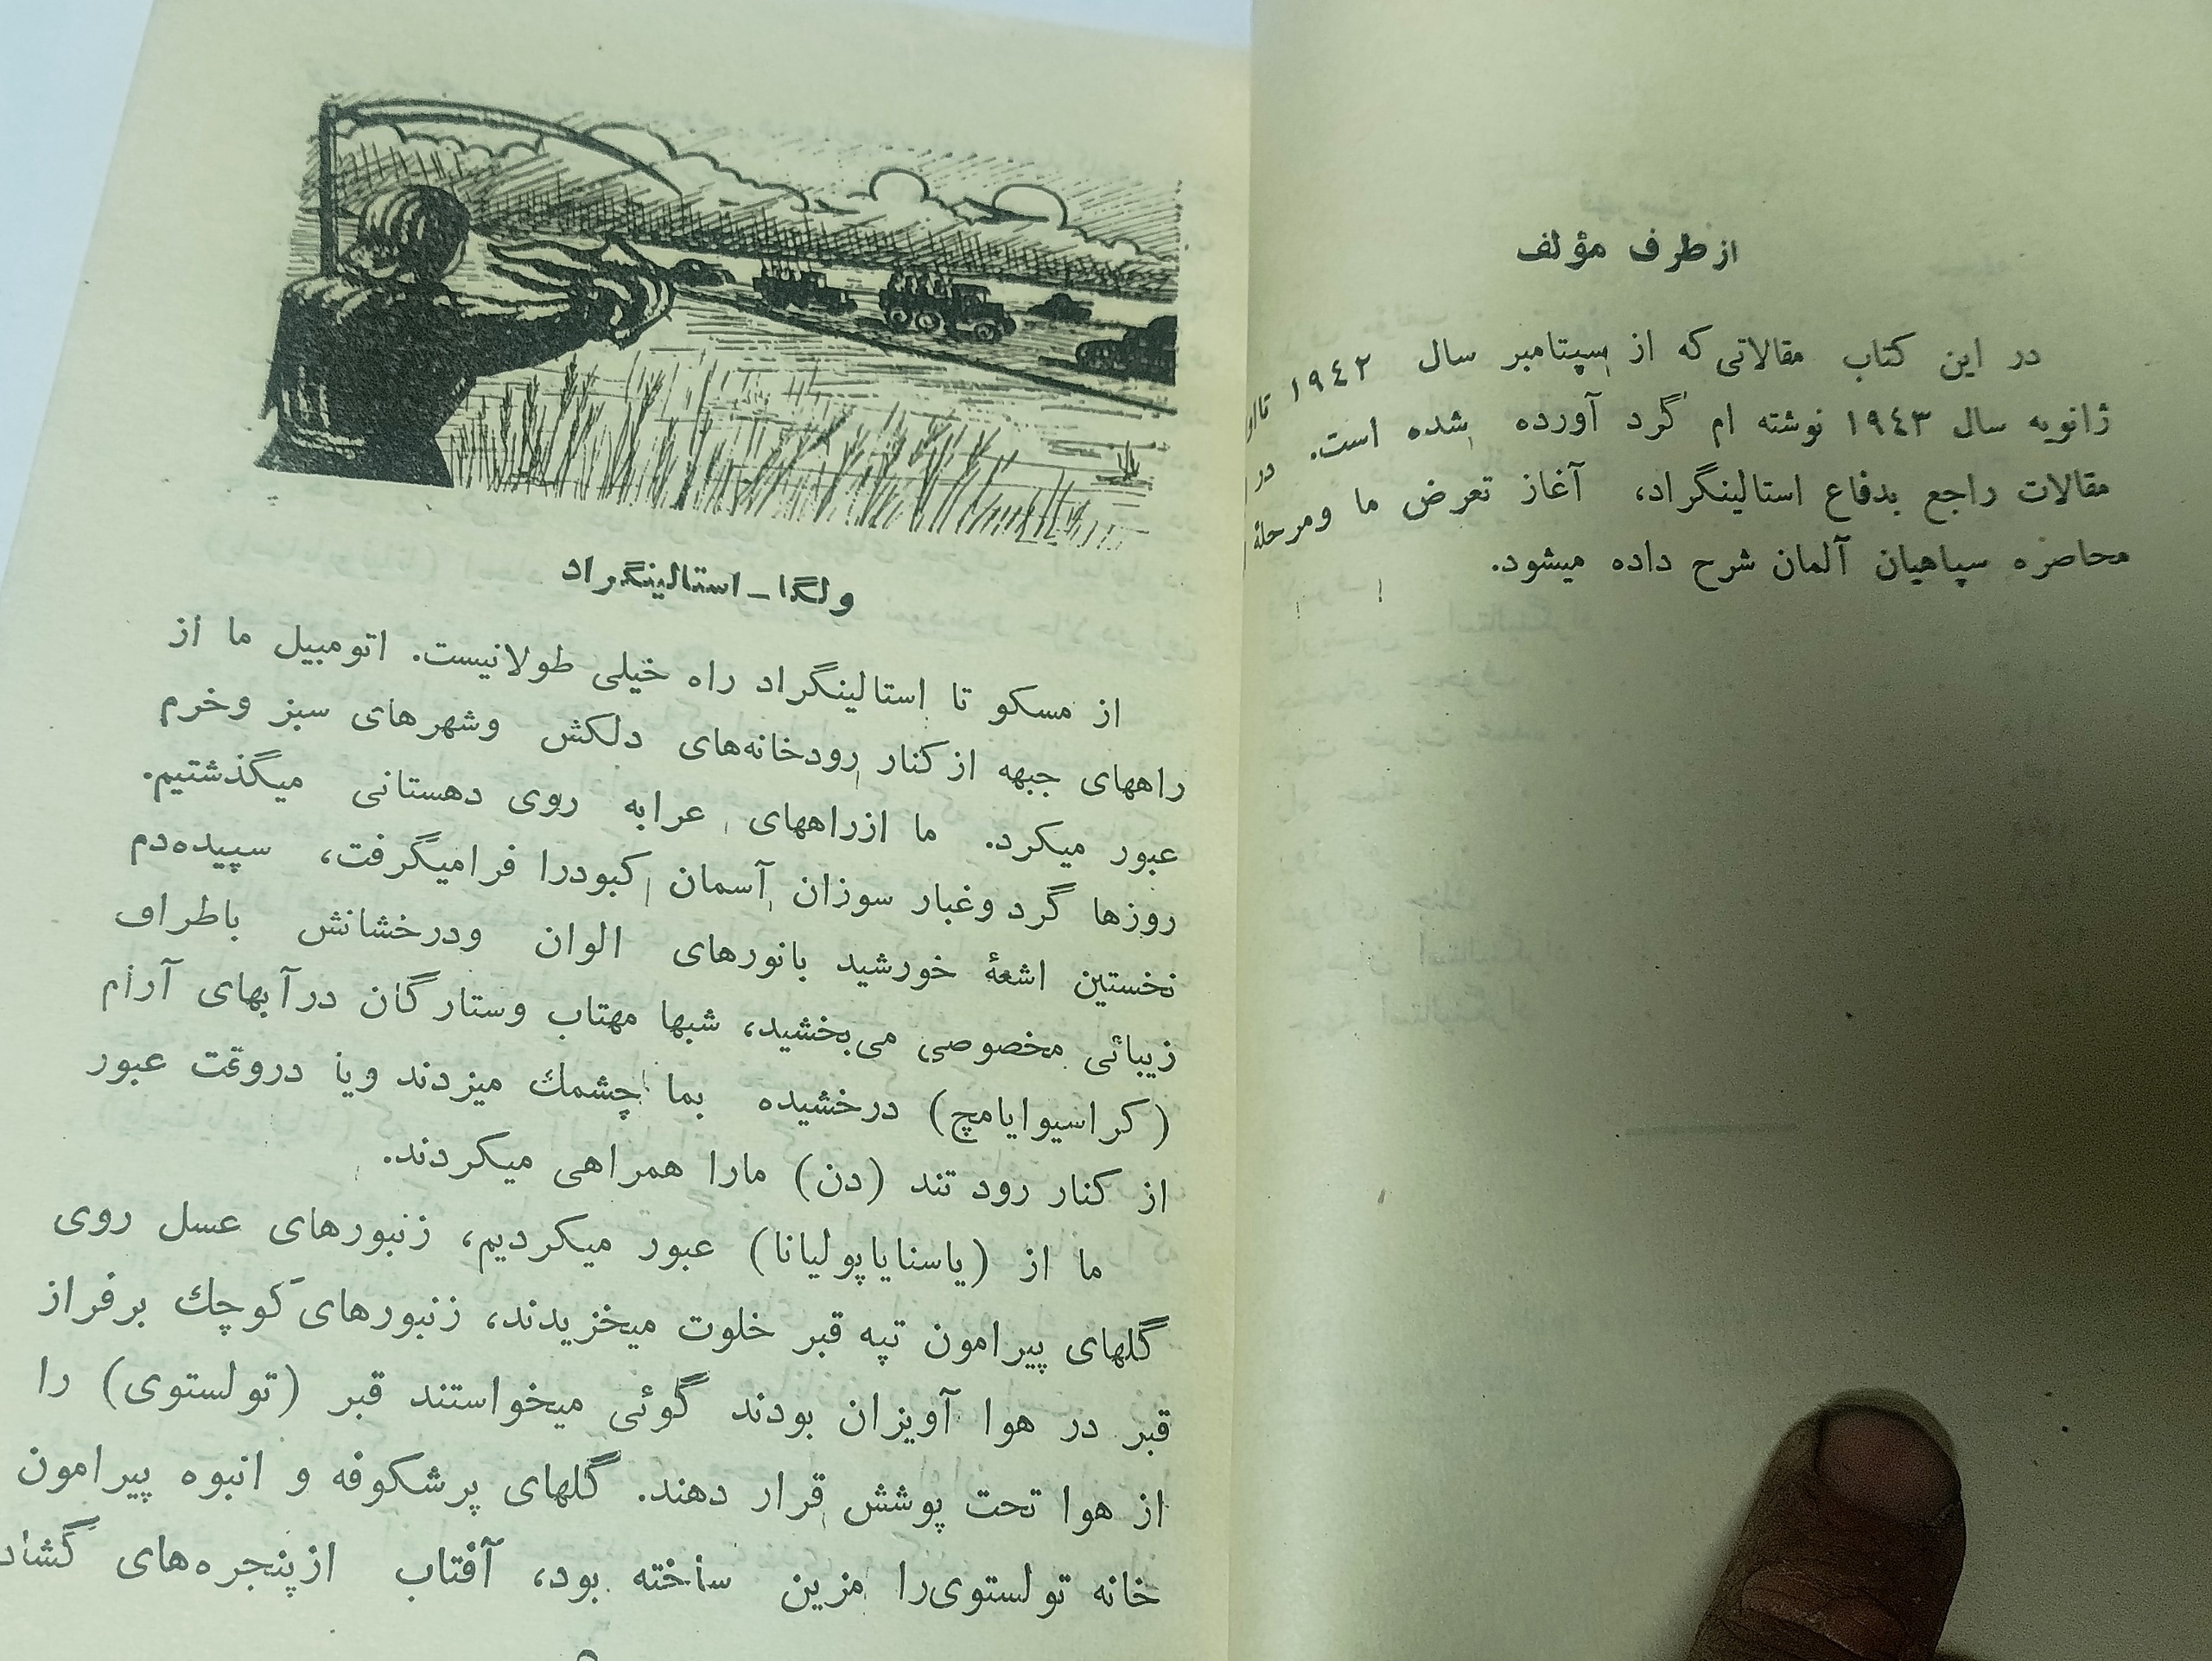 از طرف مؤلف
در این کتاب مقالاتی که از سپتامبر سال ۱۹٤۲
ژانویه سال ۱۹٤۳ نوشته ام گرد آورده شده است. در
مقالات راجع بدفاع استالینگراد، آغاز تعرض ما ومرحلهٔ
محاصره سپاهیان آلمان شرح داده میشود.
ولگا ـ استالینگراد
از مسکو تا استالینگراد راه خیلی طولانیست. اتومبیل ما از
راههای جبهه از کنار رودخانه‌های دلکش وشهرهای سبز وخرم
عبور میکرد. ما ازراههای عرابه روی دهستانی میگذشتیم.
روزها گرد وغبار سوزان آسمان کبودرا فرامیگرفت، سپیده‌دم
نخستین اشعهٔ خورشید بانورهای الوان ودرخشانش باطراف
زیبائی مخصوصی می‌بخشید، شبها مهتاب وستارگان درآبهای آرام
(کراسیوایامچ) درخشیده بما چشمك میزدند ویا دروقت عبور
از کنار رود تند (دن) مارا همراهی میکردند.
ما از (یاسنایاپولیانا) عبور میکردیم، زنبورهای عسل روی
گلهای پیرامون تپه قبر خلوت میخزیدند، زنبورهای کوچك برفراز
قبر در هوا آویزان بودند گوئی میخواستند قبر (تولستوی) را
از هوا تحت پوشش قرار دهند. گلهای پرشکوفه و انبوه پیرامون
خانه تولستوی‌را مزین ساخته بود، آفتاب ازپنجره‌های